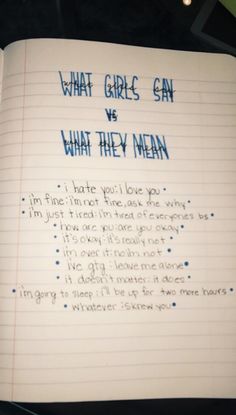 WHAT GIRLS SAY
vs
WHAT THEY MEAN
• i hate you: i love you •
• i'm fine: i'm not fine, ask me why •
• i'm just tired: i'm tired of everyones bs •
• how are you: are you okay •
• it's okay: it's really not •
• im over it: no im not •
• i've gtg: leave me alone •
• it doesn't matter: it does •
• i'm going to sleep: i'll be up for two more hours •
• whatever: screw you •